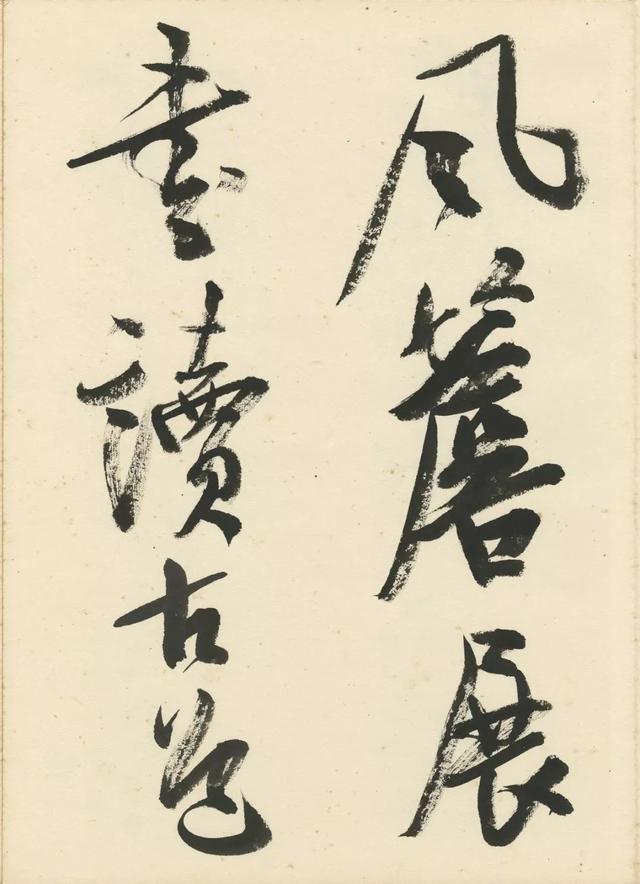 風簷展
書讀古道